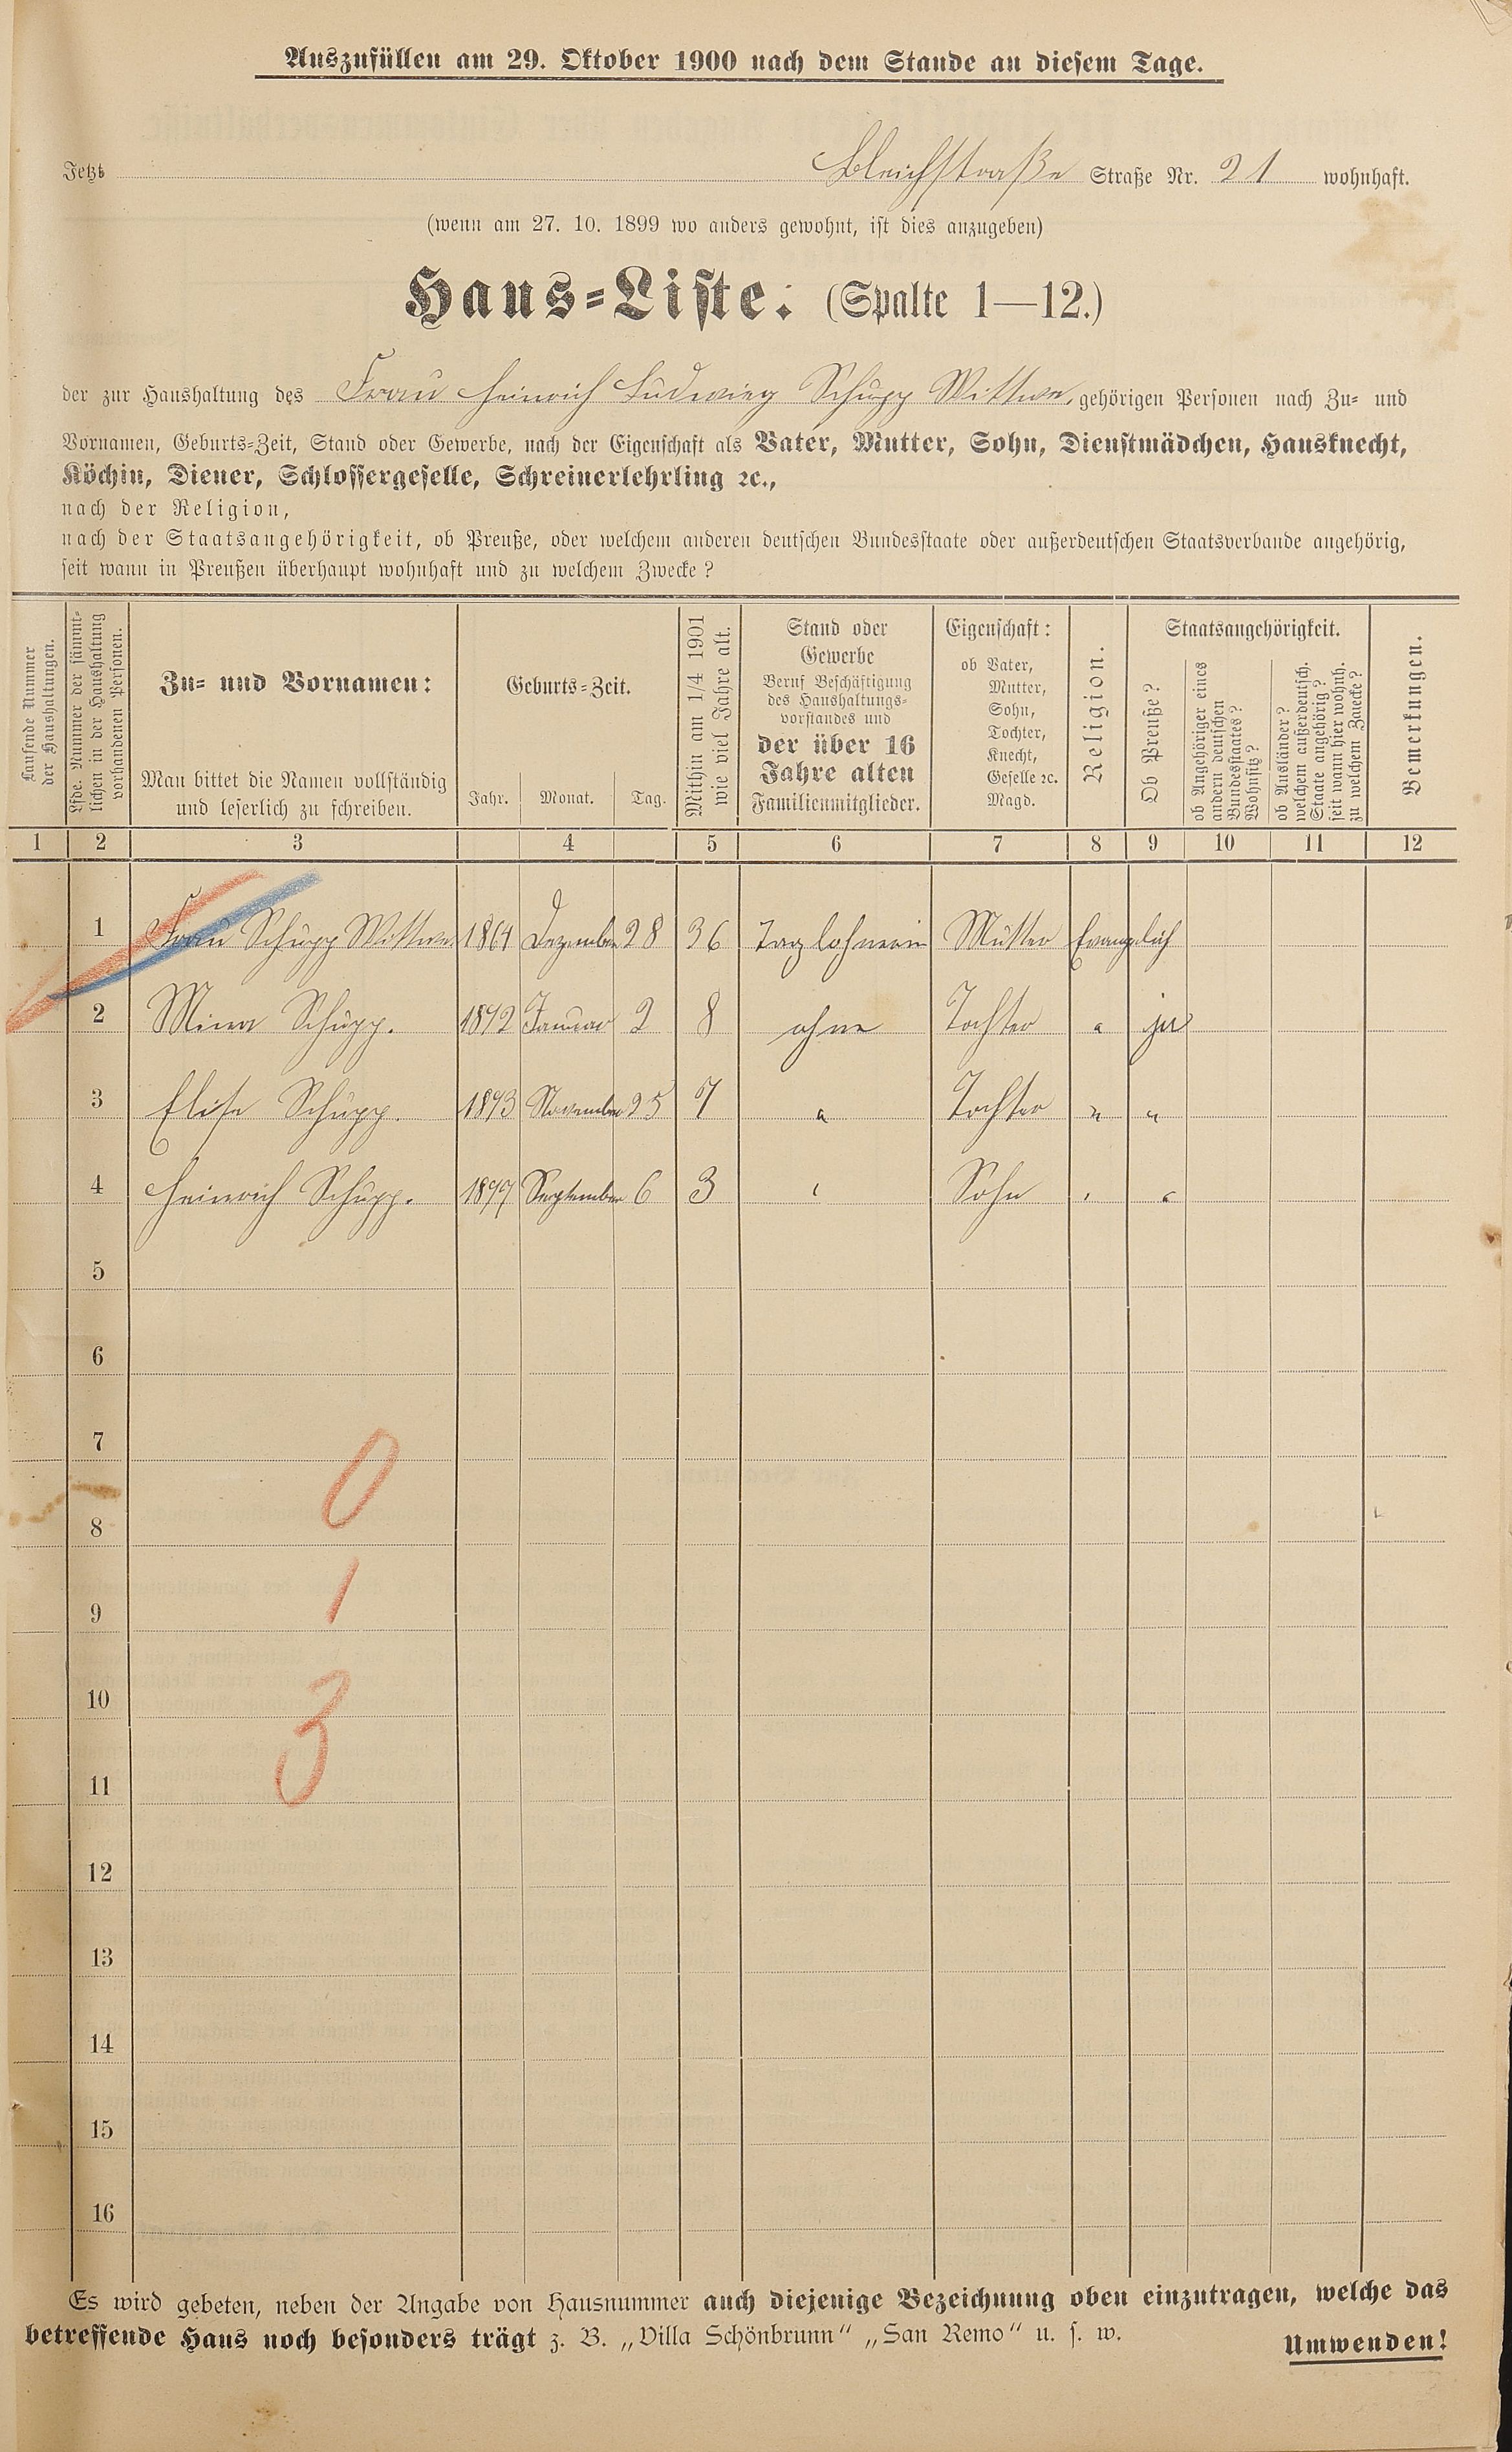 Auszufüllen am 29. Oktober 1900 nach dem Stande an diesem Tage.
Jetzt Bleichstraße Straße Nr. 21 wohnhaft.
(wenn am 27. 10. 1899 wo anders gewohnt, ist dies anzugeben)
Haus-Liste: (Spalte 1—12.)
der zur Haushaltung des Frau Heinrich Ludwieg Schupp Wittwe, gehörigen Personen nach Zu- und
Vornamen, Geburts-Zeit, Stand oder Gewerbe, nach der Eigenschaft als Vater, Mutter, Sohn, Dienstmädchen, Hausknecht,
Köchin, Diener, Schlossergeselle, Schreinerlehrling ꝛc.,
nach der Religion,
nach der Staatsangehörigkeit, ob Preuße, oder welchem anderen deutschen Bundesstaate oder außerdeutschen Staatsverbande angehörig,
seit wann in Preußen überhaupt wohnhaft und zu welchem Zwecke?
Laufende Nummer
der Haushaltungen.
Lfde. Nummer der sämmt-
lichen in der Haushaltung
vorhandenen Personen.
Zu- und Vornamen:
Man bittet die Namen vollständig
und leserlich zu schreiben.
Geburts-Zeit.
Jahr. Monat. Tag.
Mithin am 1/4 1901
wie viel Jahre alt.
Stand oder
Gewerbe
Beruf Beschäftigung
des Haushaltungs-
vorstandes und
der über 16
Jahre alten
Familienmitglieder.
Eigenschaft:
ob Vater,
Mutter,
Sohn,
Tochter,
Knecht,
Geselle ꝛc.
Magd.
Religion.
Staatsangehörigkeit.
Ob Preuße?
ob Angehöriger eines
andern deutschen
Bundesstaates?
Wohnsitz?
ob Ausländer?
welchem außerdeutsch.
Staate angehörig?
seit wann hier wohnh.
zu welchem Zwecke?
Bemerkungen.
1 2 3 4 5 6 7 8 9 10 11 12
1 Frau Schupp Wittwe 1864 Dezember 28 36 Taglohnerin Mutter Evangelich
2 Mina Schupp. 1892 Januar 2 8 ohne Tochter " ja
3 Elise Schupp. 1893 November 25 7 " Tochter " "
4 Heinrich Schupp. 1897 September 6 3 " Sohn " "
5
6
7
0
8
1
9
3
10
11
12
13
14
15
16
Es wird gebeten, neben der Angabe von Hausnummer auch diejenige Bezeichnung oben einzutragen, welche das
betreffende Haus noch besonders trägt z. B. „Villa Schönbrunn" „San Remo" u. s. w.
Umwenden!